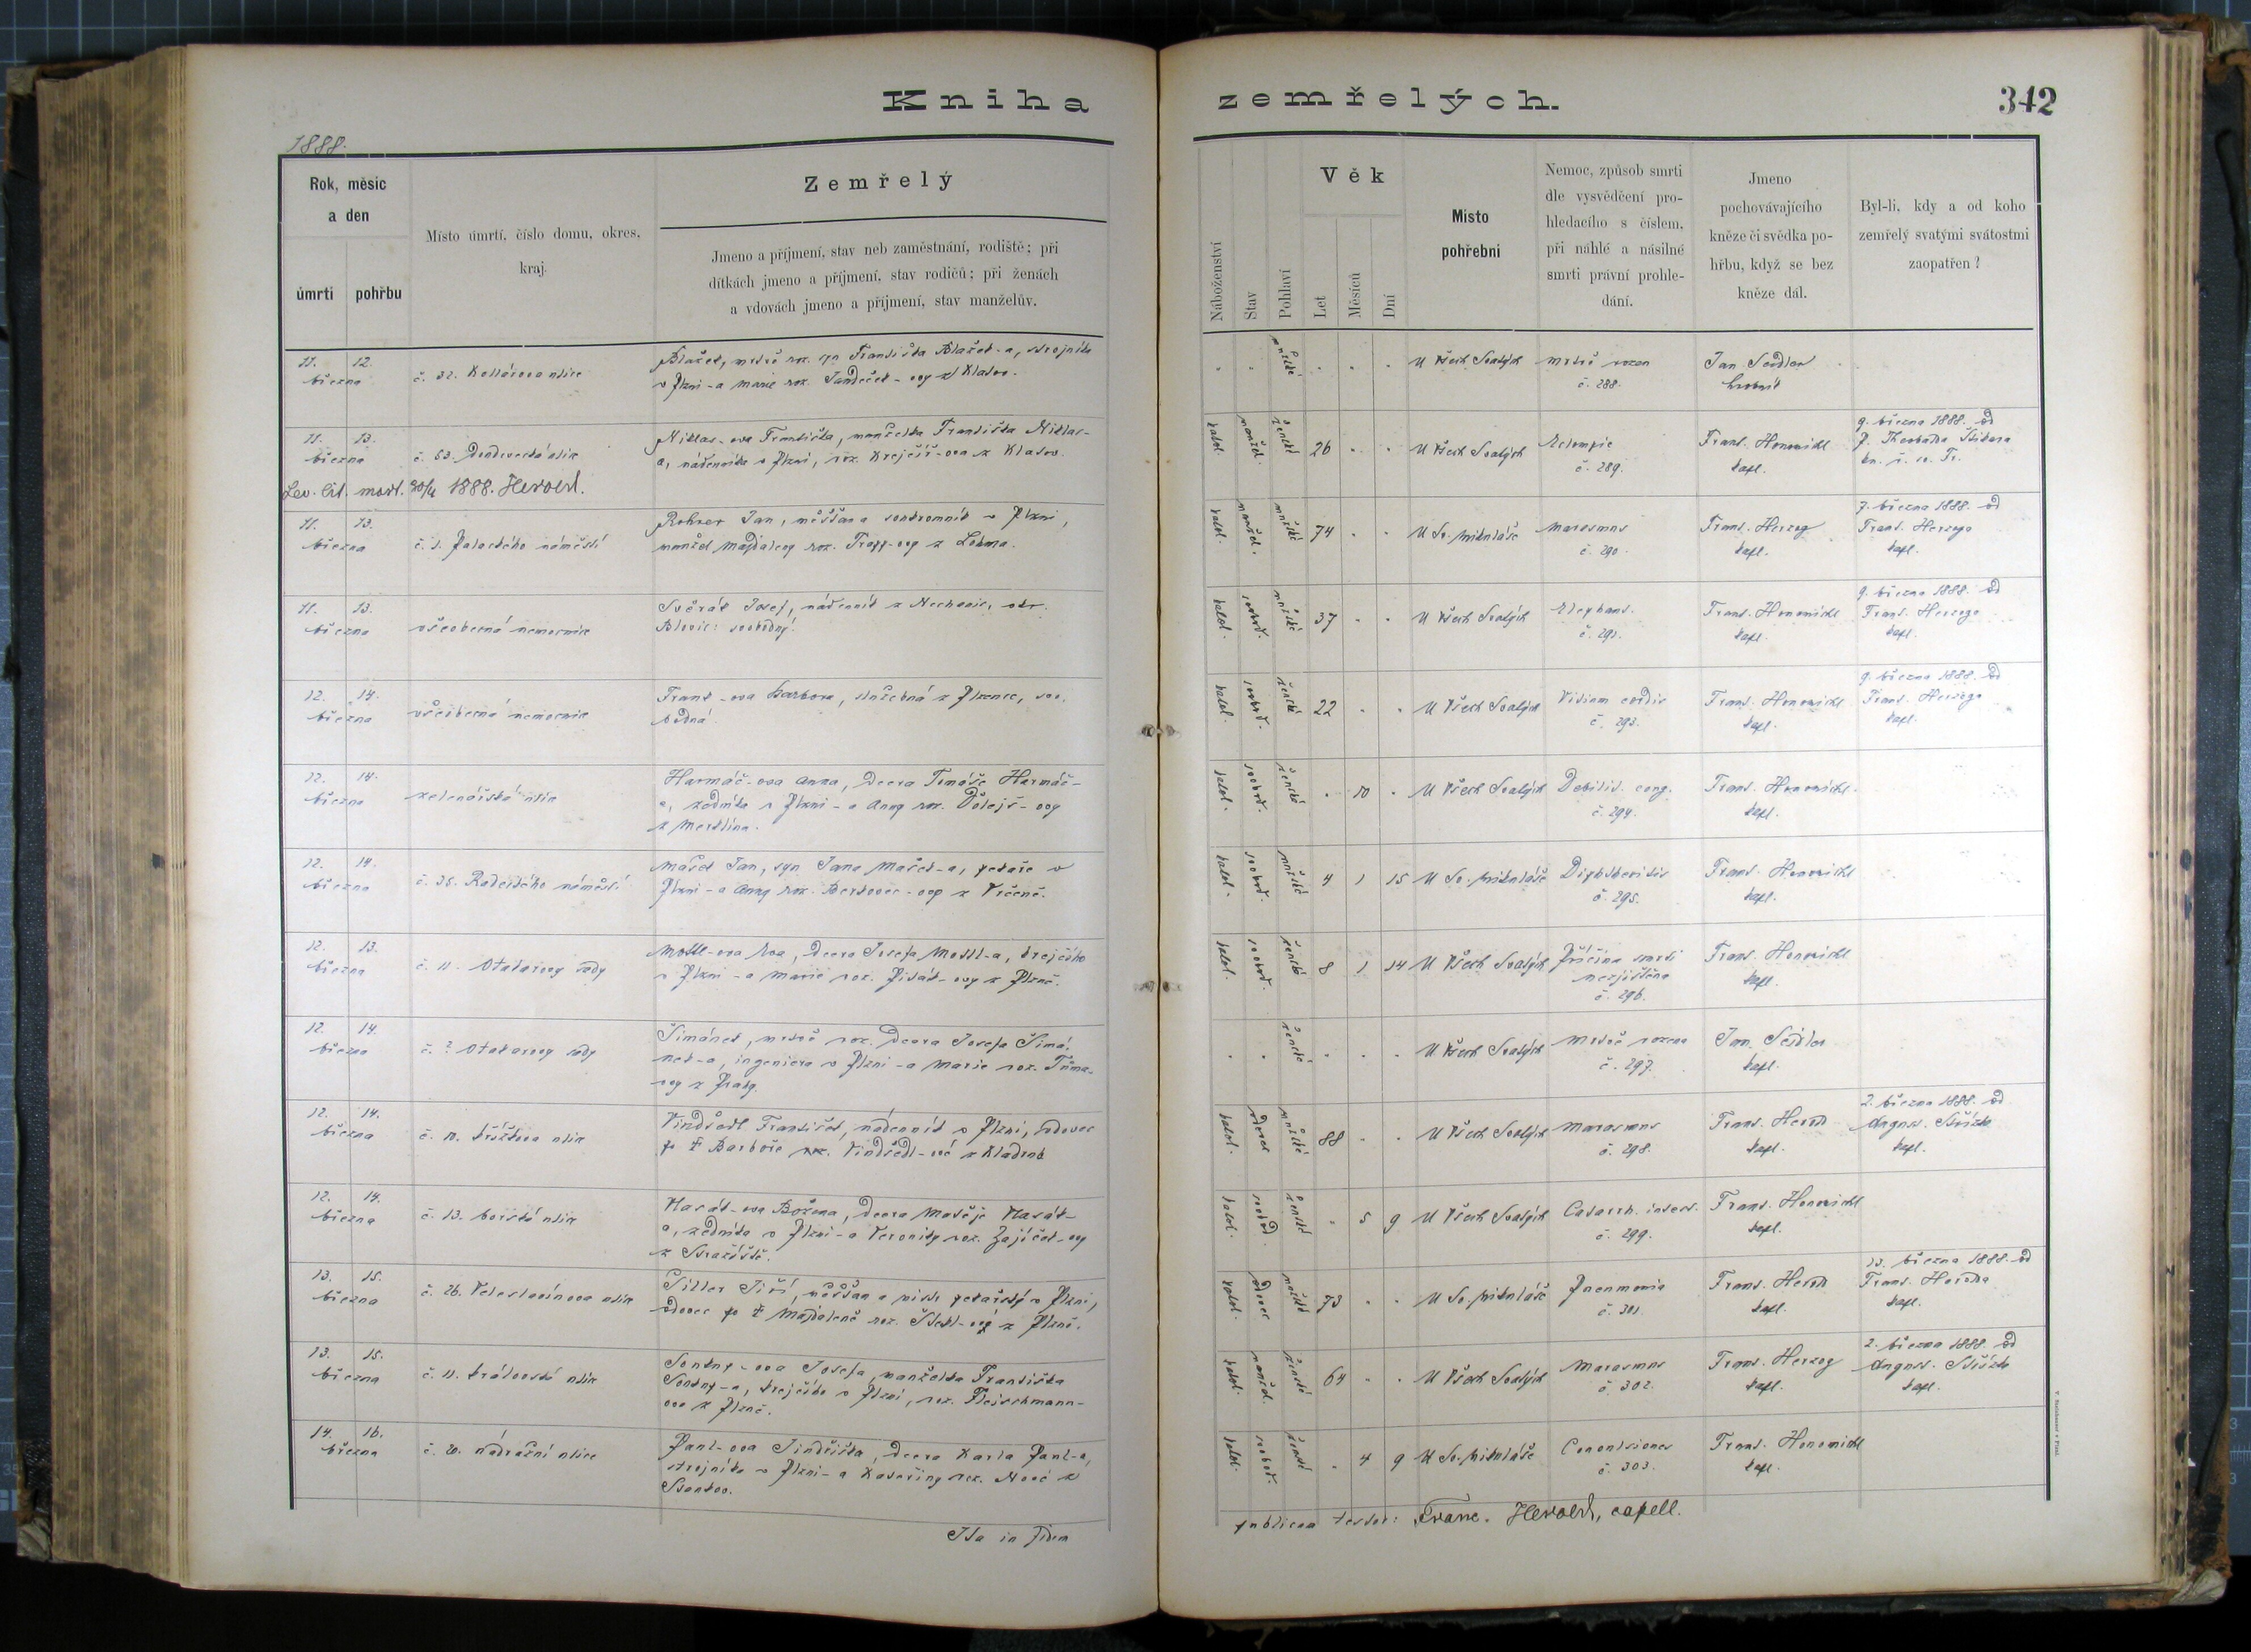 Kniha zemřelých.
342
1888.
Rok, měsíc
a den
úmrtí
pohřbu
Místo úmrtí, číslo domu, okres,
kraj.
Zemřelý
Jmeno a příjmení, stav neb zaměstnání, rodiště; při
dítkách jmeno a příjmení, stav rodičů; při ženách
a vdovách jmeno a příjmení, stav manželův.
Náboženství
Stav
Pohlaví
Věk
Let
Měsíců
Dní
Místo
pohřební
Nemoc, způsob smrti
dle vysvědčení pro-
hledacího s číslem,
při náhlé a násilné
smrti právní prohle-
dání.
Jmeno
pochovávajícího
kněze či svědka po-
hřbu, když se bez
kněze dál.
Byl-li, kdy a od koho
zemřelý svatými svátostmi
zaopatřen?
11. 12.
března
č. 32. Kollárova ulice
Blažek, mrtvě roz. syn Františka Blažek-a, strojníka
v Plzni - a Marie roz. z Klatov.
mužské
U Všech Svatých
mrtvě rozen
č. 288.
Jan Seidler
hrobník
11. 13.
března
č. 53. ulice
Niklas-ova Františka, manželka Františka Niklas-
a, nádenníka v Plzni, roz. Krejčíř-ova z Klatov.
katol. manžel. ženské 26
U Všech Svatých
Eclampsie
č. 289.
Frant. Honomichl
kapl.
9. března 1888. od
P. Theobalda
Lev. Cit. mort. 30/4 1888. Herold.
11. 13.
března
č. 1. Palackého náměstí
Rohrer Jan, měšťan a soukromník v Plzni,
manžel Majdaleny roz. Trapp-ovy z
katol. manžel. mužské 74
U Sv. Mikuláše
Marasmus
č. 290.
Frant. Herzog
kapl.
7. března 1888. od
Frant. Herzoga
kapl.
11. 13.
března
všeobecná nemocnice
Svěrák Josef, nádenník z Nechanic, okr.
Blovic: svobodný.
katol. svobod. mužské 37
U Všech Svatých
Elephant.
č. 291.
Frant. Honomichl
kapl.
9. března 1888. od
Frant. Herzoga
kapl.
12. 14.
března
všeobecná nemocnice
Frant-ova Barbora, služebná z Plzenec, svo-
bodná.
katol. svobod. ženské 22
U Všech Svatých
Vitium cordis
č. 293.
Frant. Honomichl
kapl.
9. března 1888. od
Frant. Herzoga
kapl.
12. 14.
března
zelenářská ulice
Harmáč-ova Anna, dcera Tomáše Harmáč-
a, zedníka v Plzni - a Anny roz. Dolejš-ovy
z Merklína.
katol. svobod. ženské 10
U Všech Svatých
Debilit. cong.
č. 294.
Frant. Honomichl
kapl.
12. 14.
března
č. 35. Radeckého náměstí
Mašek Jan, syn Jana Mašek-a, pekaře v
Plzni - a Anny roz. Berkovec-ovy z Vrčeně.
katol. svobod. mužské 4 1 15
U Sv. Mikuláše
Diphtheritis
č. 295.
Frant. Honomichl
kapl.
12. 13.
března
č. 11. Otakarovy sady
Mottl-ova Eva, dcera Josefa Mottl-a, krejčího
v Plzni - a Marie roz. Pišát-ovy z Plzně.
katol. svobod. ženské 8 1 14
U Všech Svatých
Příčina smrti
nezjištěna
č. 296.
Frant. Honomichl
kapl.
12. 14.
března
č. 2 Otakarovy sady
Šimánek, mrtvě roz. dcera Josefa Šimá-
nek-a, ingeniera v Plzni - a Marie roz. Tůma-
ovy z Prahy.
ženské
U Všech Svatých
mrtvě rozena
č. 297.
Jan Seidler
kapl.
12. 14.
března
č. 10. ulice
Vindšedl František, nádenník v Plzni, vdovec
po † Barboře roz. Vindšedl-ové z Kladrub
katol. vdovec mužské 88
U Všech Svatých
Marasmus
č. 298.
Frant. Herold
kapl.
2. března 1888. od
kapl.
12. 14.
března
č. 13. borská ulice
Havát-ova Božena, dcera Matěje Havát-
a, zedníka v Plzni - a Veroniky roz. Zajíček-ovy
z Stražiště.
katol. svobod. ženské 5 9
U Všech Svatých
Catarrh. intest.
č. 299.
Frant. Honomichl
kapl.
13. 15.
března
č. 26. Veleslavínova ulice
Siller Jiří, měšťan a mistr pekařský v Plzni,
vdovec po † Majdaleně roz. z Plzně.
katol. vdovec mužské 73
U Sv. Mikuláše
Pneumonia
č. 301.
Frant. Herold
kapl.
13. března 1888. od
Frant. Herolda
kapl.
13. 15.
března
č. 11. královská ulice
Soukup-ova Josefa, manželka Františka
Soukup-a, krejčího v Plzni, roz. Fleischmann-
ova z Plzně.
katol. manžel. ženské 64
U Všech Svatých
Marasmus
č. 302.
Frant. Herzog
kapl.
2. března 1888. od
kapl.
14. 16.
března
č. 20. nádražní ulice
Paul-ova Jindřiška, dcera Karla Paul-a,
strojníka v Plzni - a Kateřiny roz. Nové z
katol. svobod. ženské 4 9
U Sv. Mikuláše
Convulsiones
č. 303.
Frant. Honomichl
kapl.
Ita in fidem
publicam testor: Franc. Herold, capell.